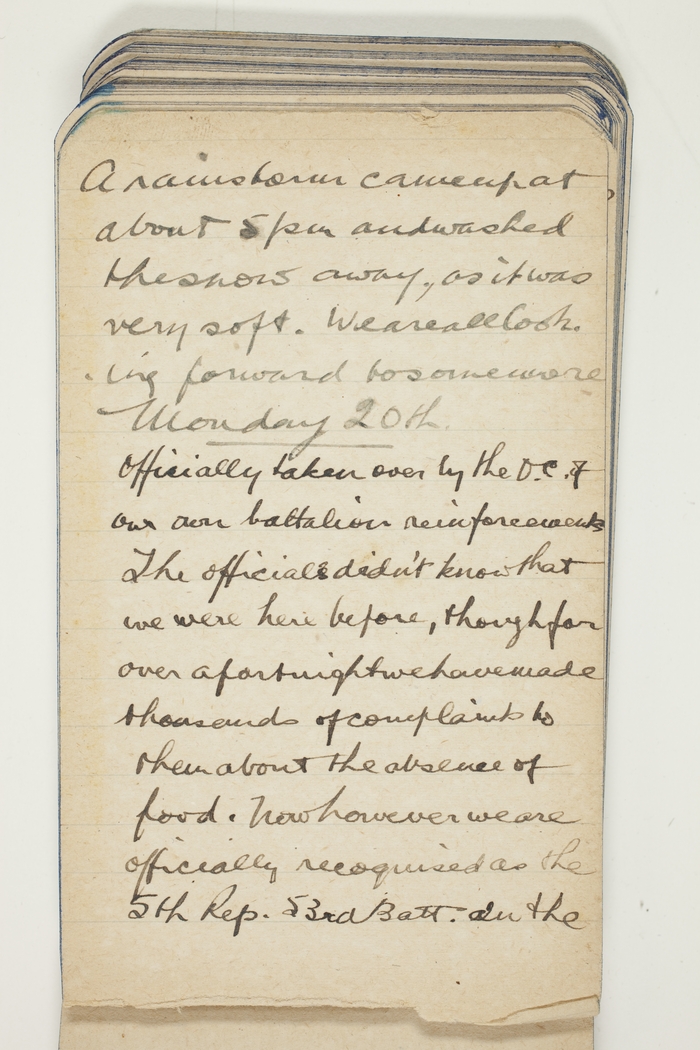 A rainstorm came up at
about 5pm and washed
the snow away, as it was
very soft. We are all look-
ing forward to some more
Monday 20th.
Officially taken over by the O.C. of
our own battalion reinforcements
The officials didn't know that
we were here before, though for
over a fortnight we have made
thousands of complaints to
them about the absence of
food. Now however we are
officially recognised as the
5th Rep. 53rd Batt. In the